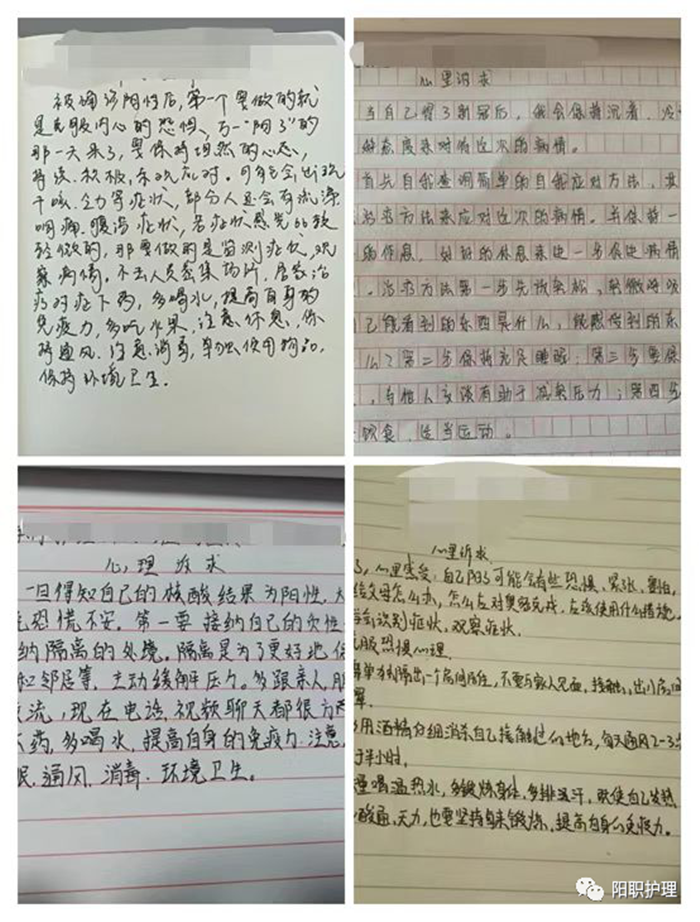 被确诊阳性后,第一个要做的就
是克服内心的恐惧,万一"阳了"的
那一天来了,要保持坦然的心态,
持续、积极、乐观应对。可能会出现
干咳、乏力等症状,部分人还会有流涕
咽痛、腹泻症状,若症状感觉
轻微的,那要做的是监测症状,观
察病情。不去人员密集场所,居家治
疗对症下药,多喝水,提高自身的
免疫力,多吃水果,注意休息,保
持通风,注意消毒,单独使用物品,
保持环境卫生.
心里诉求
当自己得了新冠后,我会保持沉着、冷
静态度来对待这次的病情。
首先自我查询简单的自我应对方法,其
治疗方法来应对这次的病情。并保持一
的休息,好好的休息来进一步促进病情
治疗方法第一步先放轻松,
己能看到的东西是什么,能感受到的东
么?第二步保持充足睡眠;第三步要保
,与他人交谈有助于减轻压力;第四步
饮食,适当运动。
心理诉求
一旦得知自己的核酸结果为阳性,
恐慌不安。第一要接纳自己的
纳隔离的处境。隔离是为了更好地保
和邻居等,主动缓解压力。多跟亲人、朋
交流,现在电话、视频聊天都很方
药,多喝水,提高自身的免疫力.注意
眠.通风、消毒.环境卫生。
心里诉求
心里感受:自己阳了可能会有些恐惧、紧张、害怕,
给父母怎么办,怎么应对奥密克戎,应该使用什么措施。
学会识别症状,观察症状.
克服恐惧心理.
单独隔出一个房间居住,不要与家人见面、接触,出门房间
罩.
用酒精仔细消杀自己接触过的地方,每天通风2-3次
于半小时.
喝温热水,多锻炼身体,多排湿汗,致使自己发热
酸痛、乏力,也要坚持起来锻炼,提高自身的免疫力.
阳职护理